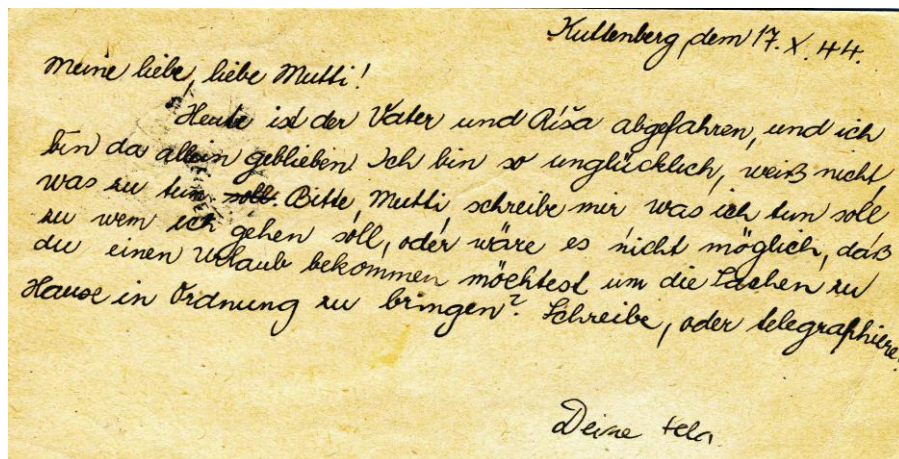 Kuttenberg, dem 17. X. 44.
Meine liebe, liebe Mutti!
Heute ist der Vater und Ríša abgefahren, und ich
bin da allein geblieben. Ich bin so unglücklich, weiß nicht,
was zu tun soll. Bitte, Mutti, schreibe mir was ich tun soll
zu wem ich gehen soll, oder wäre es nicht möglich, daß
du einen Urlaub bekommen möchtest um die Sachen zu
Hause in Ordnung zu bringen? Schreibe, oder telegraphiere!
Deine